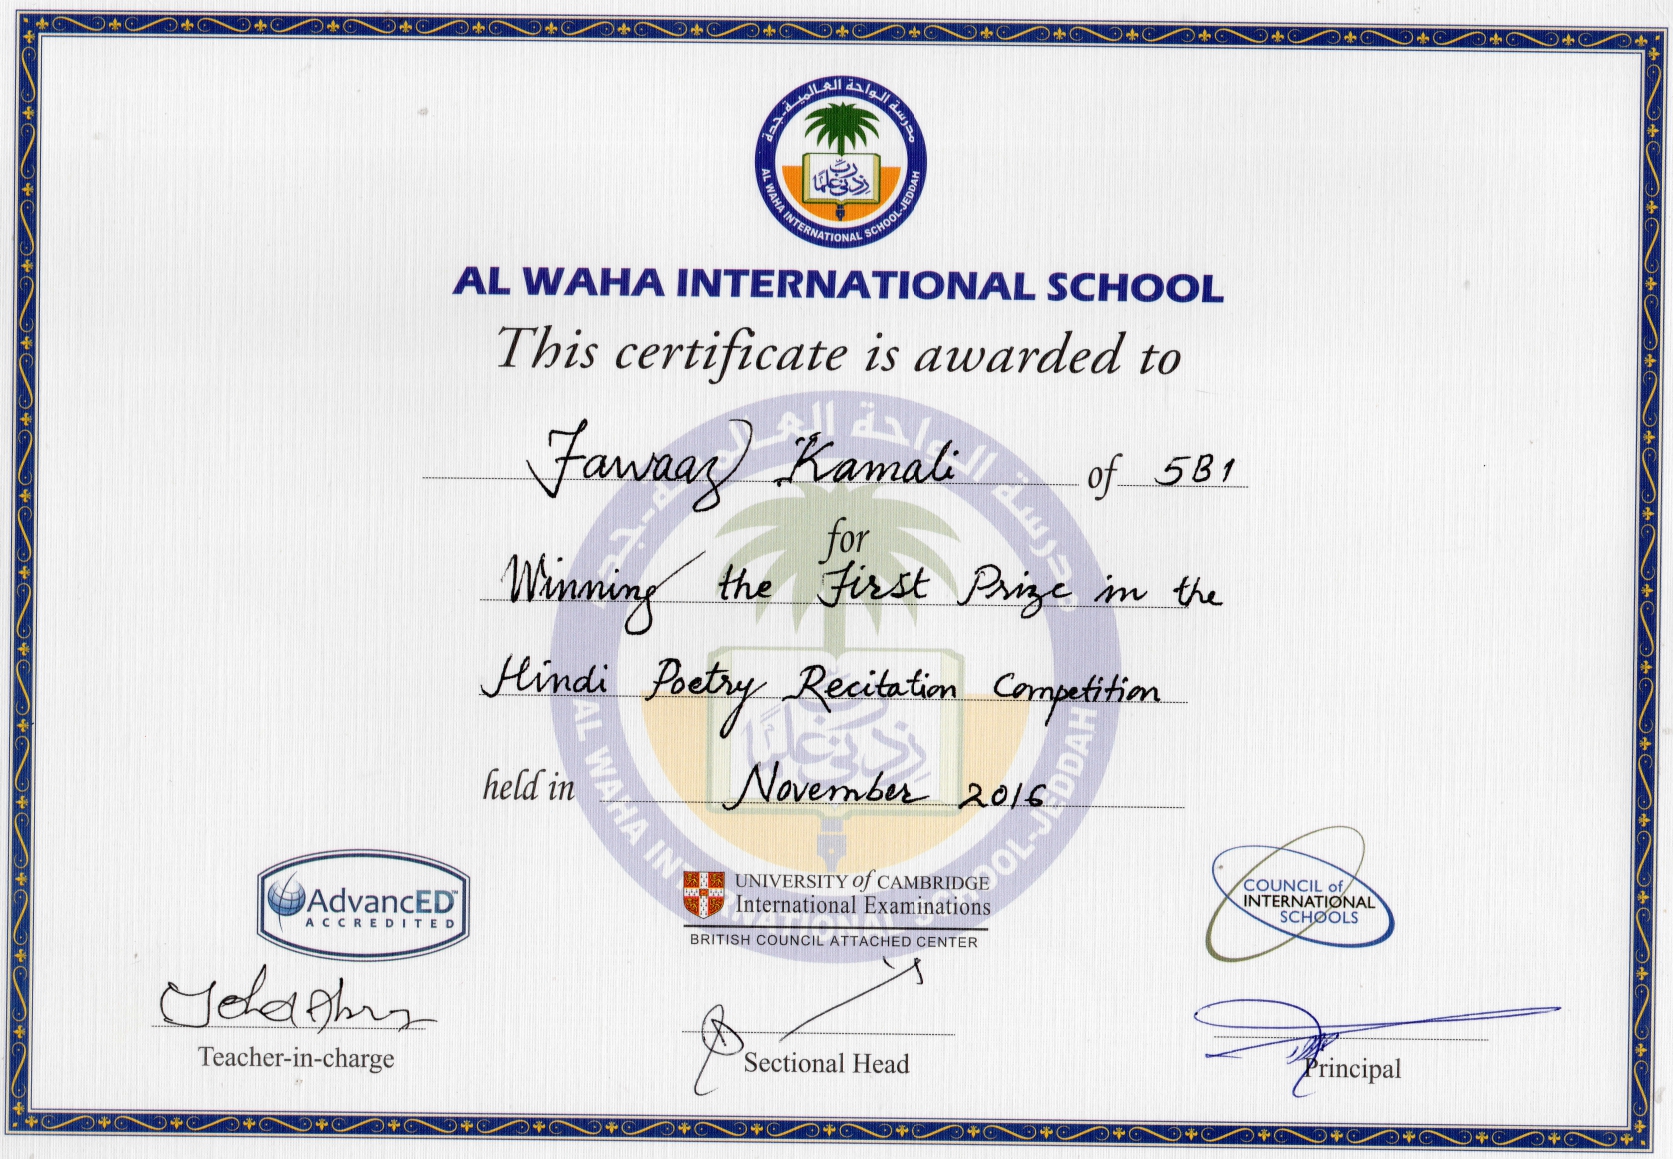 مدرسة الواحة العالمية-جدة
رب زدني علما
AL WAHA INTERNATIONAL SCHOOL-JEDDAH
AL WAHA INTERNATIONAL SCHOOL
This certificate is awarded to
Fawaaz Kamali of 5B1
for
Winning the First Prize in the
Hindi Poetry Recitation Competition
held in November 2016
مدرسة الواحة العالمية-جدة
رب زدني علما
AL WAHA INTERNATIONAL SCHOOL-JEDDAH
AdvancED™
ACCREDITED
UNIVERSITY of CAMBRIDGE
International Examinations
BRITISH COUNCIL ATTACHED CENTER
COUNCIL of
INTERNATIONAL
SCHOOLS
Teacher-in-charge
Sectional Head
Principal